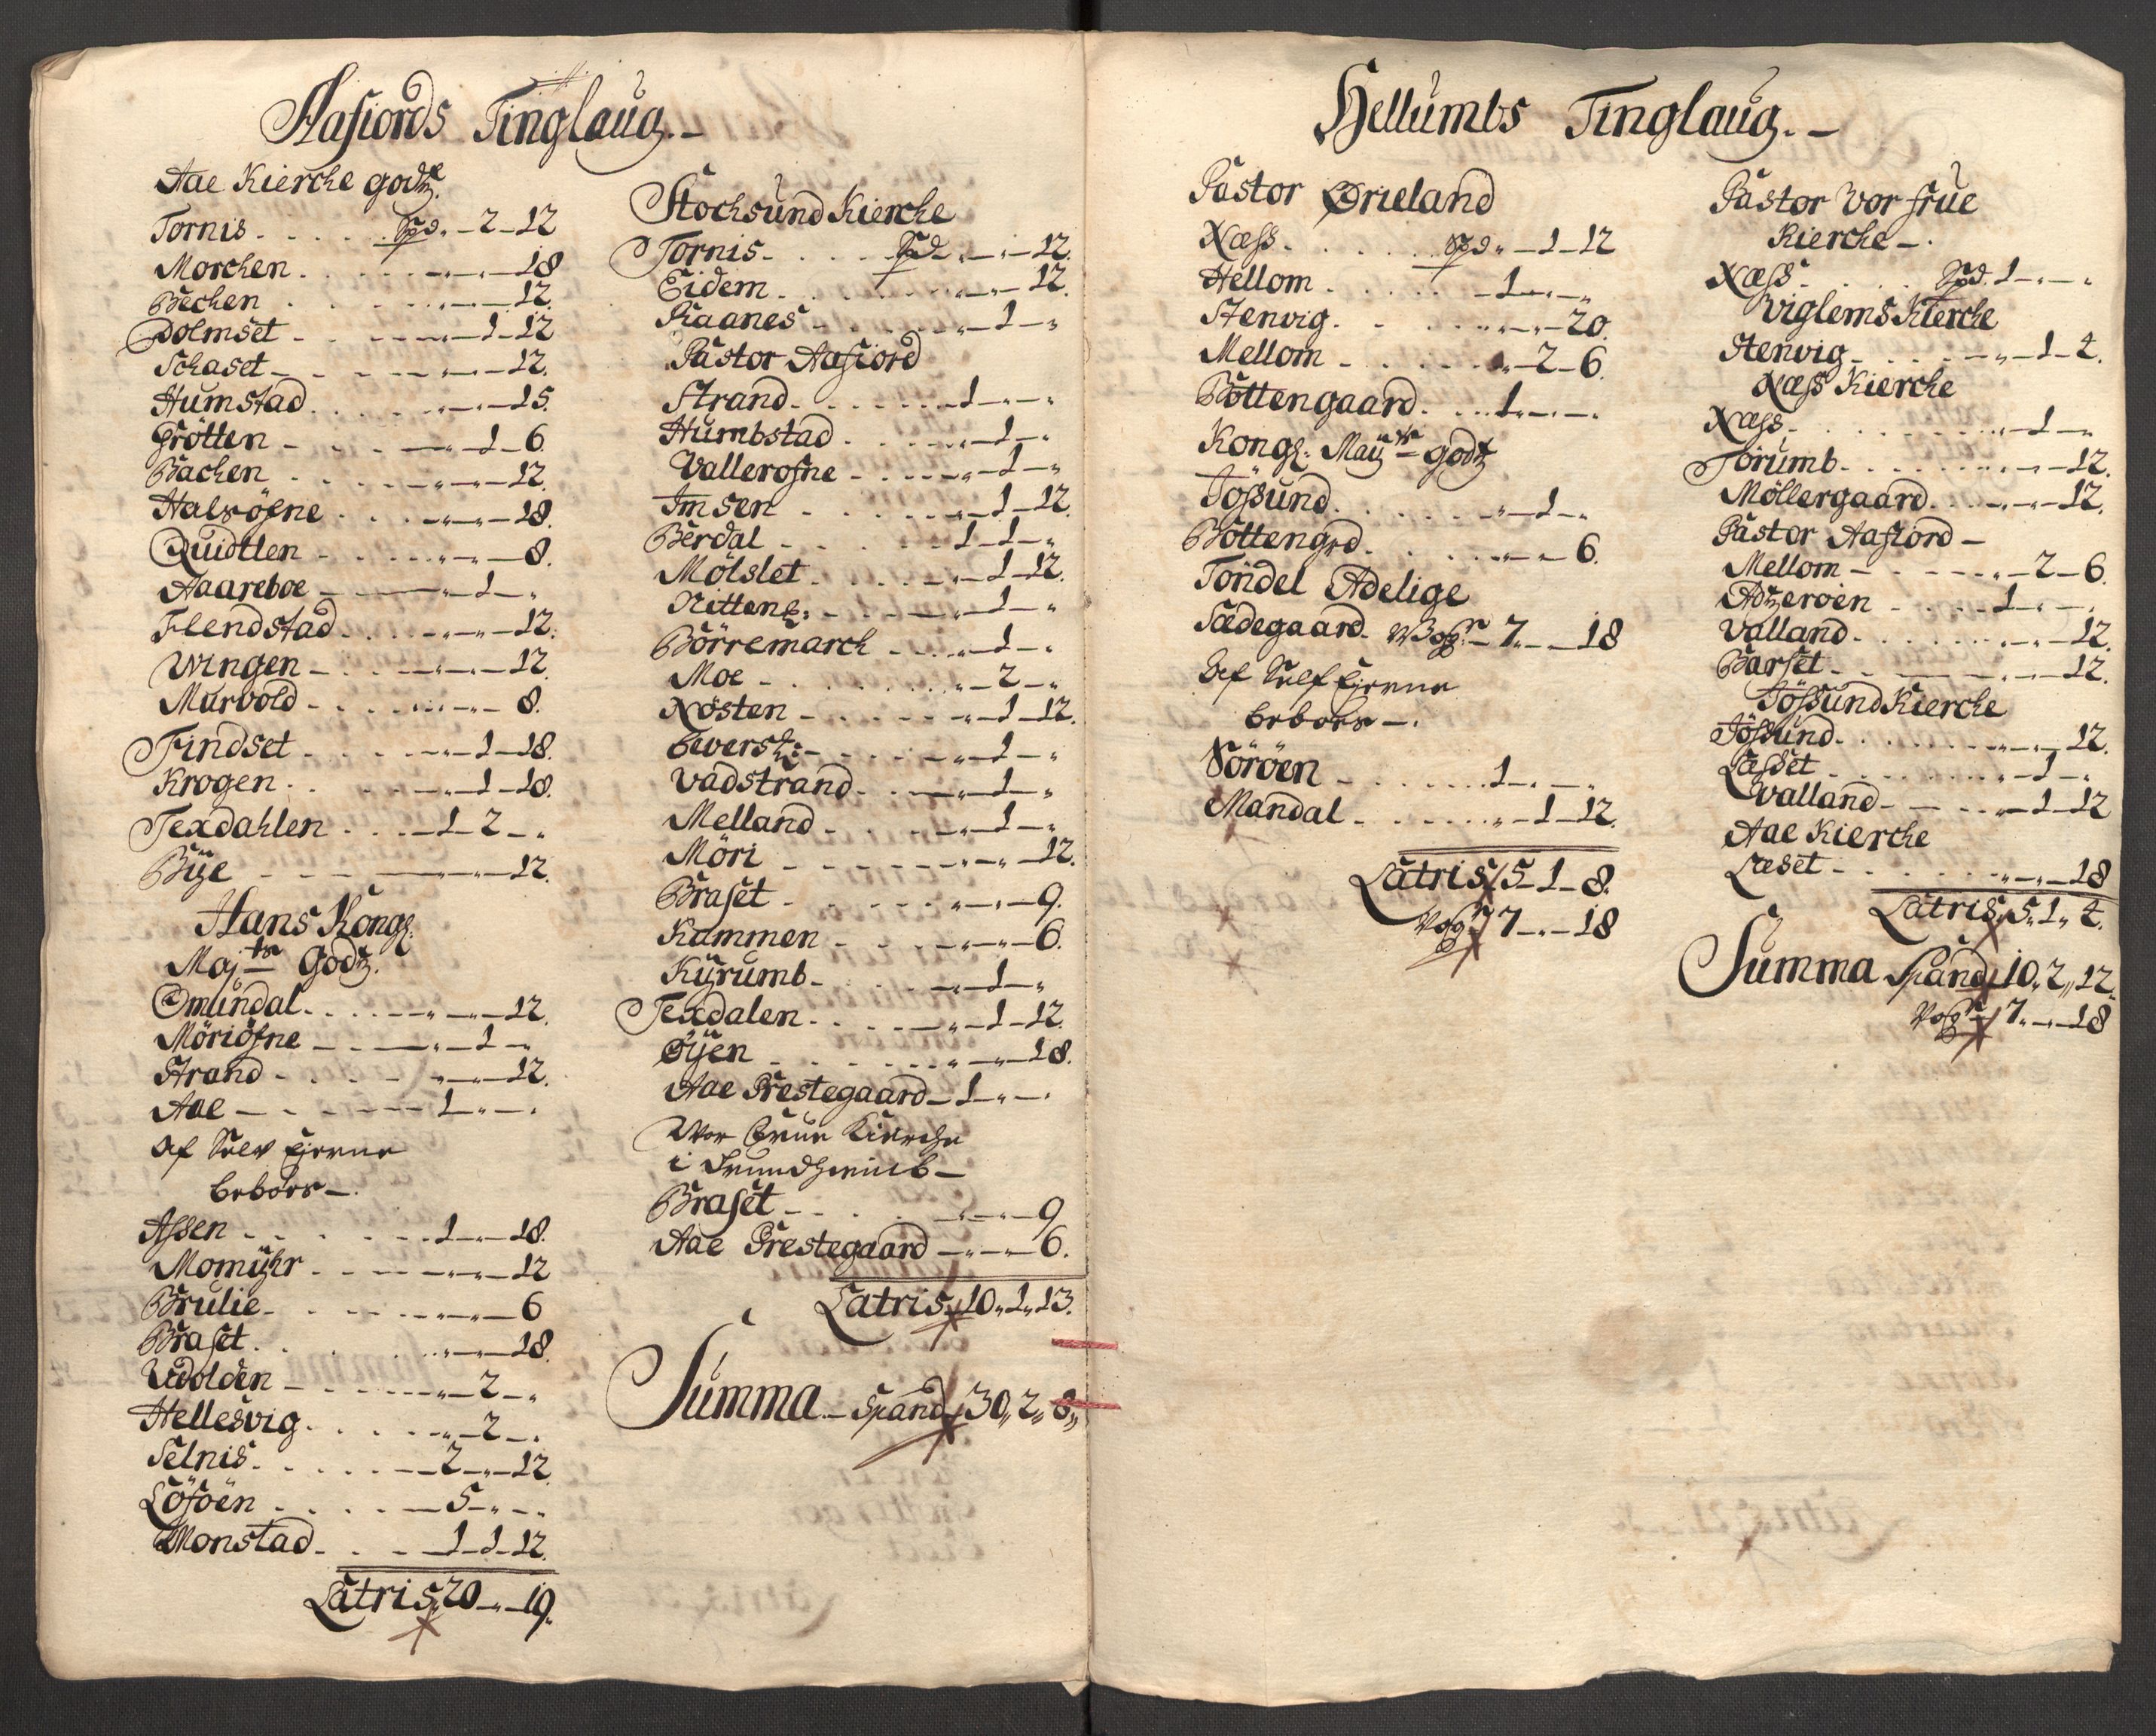 Aafiords Tinglaug.–
Aae Kierche godtz.
Tornis . . . . . Spd. „ – 2 – 12
Morchen . . . . . „ – „ – 18
Bechen . . . . . „ – „ – 12.
Dolmset . . . . . „ – 1 – 12
Schaset – . . . . „ – „ – 12.
Humstad . . . . . „ – „ – 15.
Grötten – . . . . – 1 – 6.
Bachen . . . . . „ – „ – 12.
Halsöfne . . . . „ – „ – 18.
Quidtlen – . . . . „ – „ – 8.
Aaareboe – – – „ – 1 – „
Flendstad . . . . „ – „ – 12.
Wingen – . . . . „ – „ – 12.
Murvold – . . . . „ – „ – 8.
Findset . . . . . „ – 1 – 18.
Krogen . . . . . „ – 1 – 18.
Texdahlen . . . – 1 – 2 – „
Bye – – – – „ – „ – 12.
Hans Kongl:
Maj.ts Godtz.
Omundal . . . . . „ – „ – 12.
Möriöfne – – – „ – 1 – „
Strand – . . . . „ – „ – 12.
Aae – – . . – – 1 – „ – „
Af Selv Eierne
bebörs –.
Assen . . . . . 1 – „ – 18.
Momyhr . . . . . „ – „ – 12
Brulie . . . . . „ – „ – 6
Braset . . . . . „ – „ – 18.
Udolden – . . . . „ – 2 – „
Hellesvig . . . . „ – 2 – „
Selnis . . . . . – 2 – „ – 12.
Löföen . . . . – 5 – „ – „
Monstad . . . – 1 – 1 – 12.
Latris „ 20 – „ – 19.
Stochsund Kierche
Tornis – . . . . Spd „ – „ – 12.
Eidem . . . . . „ – „ – 12.
Raanes – . . . . „ – 1 – „
Pastor Aafiord
Strand . . . . . – 1 – „ – „
Humbstad . . . . . „ – 1 – „
Vallerofne – . . . . „ – 1 – „
Imsen – . . . . „ – 1 – 12.
Berdal – . . . . 1 – 1 – „
Mölslet . . . . . „ – 1 – 12.
Nittene: . . . . „ – 1 – „
Börremarch – . . . „ – 1 – „
Moe – . . . . . „ – 2 – „
Nösten – . . . . „ – 1 – 12.
Vadstrand . . . „ – 1 – „
Melland – . . . . „ – 1 – „
Möri – – – – „ – „ – 12.
Braset – . . . . „ – „ – 9.
Rammen – . . . . „ – „ – 6.
Kyrumb – . . . . „ – 1 – „
Texdalen . . . . „ – 1 – 12.
Öyen – . . . . . „ – „ – 18.
Aae Prestegaard – 1 – „ – „
Vor Frue Kierche
i Trundhiemb –
Braset – . . . . „ – „ – 9
Aae Prestegaard – „ – „ – 6.
Latris „ 10 „ 1 „ 13.
Summa – Spand 30 „ 2 „ 8 „
Hellumbs Tinglaug.–
Pastor Ørieland
Næss . . . . . Spd „ – 1 – 12
Hellom . . . . . – 1 – „ – „
Stenvig . . . . . „ – „ – 20.
Mellom – . . . . . – 2 – 6.
Bottengaard . . . 1 – „ – „
Kongl: May.ts godtz
Jössund . . . . . „ – 1 – „
Bottengrd . . . . „ – „ – 6.
Töndel Adelige
Sædegaard . Wogr – 7 – „ – 18
Af Self Eierne
bebörs –.
Söröen – . . . . . 1 – „ – „
Mandal . . . . . „ – 1 – 12.
Latris 5 – 1 – 8.
Wogr 7 – „ – 18
Pastor Vor frue
Kierche –.
Næss – . . . . Spd. 1 – „ – „
Viglems Kierche
Stenvig – . . . . „ – 1 – 2.
Næss Kierche
Næss . . . . . „ – 1 – „
Torumb . . . . . „ – „ – 12.
Möllergaard . . . „ – „ – 12.
Pastor Aafiord –
Mellom – . . . . „ – 2 – 6.
Adzeroen . . . . 1 – „ – „
Valland . . . . . „ – „ – 12.
Barset – . . . . – „ – 12.
Jössund Kierche
Jössund . . . . . „ – „ – 12.
Læsset . . . . . „ – 1 – „
Valland – – . . „ – 1 – 12
Aae Kierche
Læset – . . . . . „ – „ – 18
Latris „ 5 „ 1 „ 2.
Summa Spand 10 „ 2 „ 12.
Wogr 7 – „ – 18